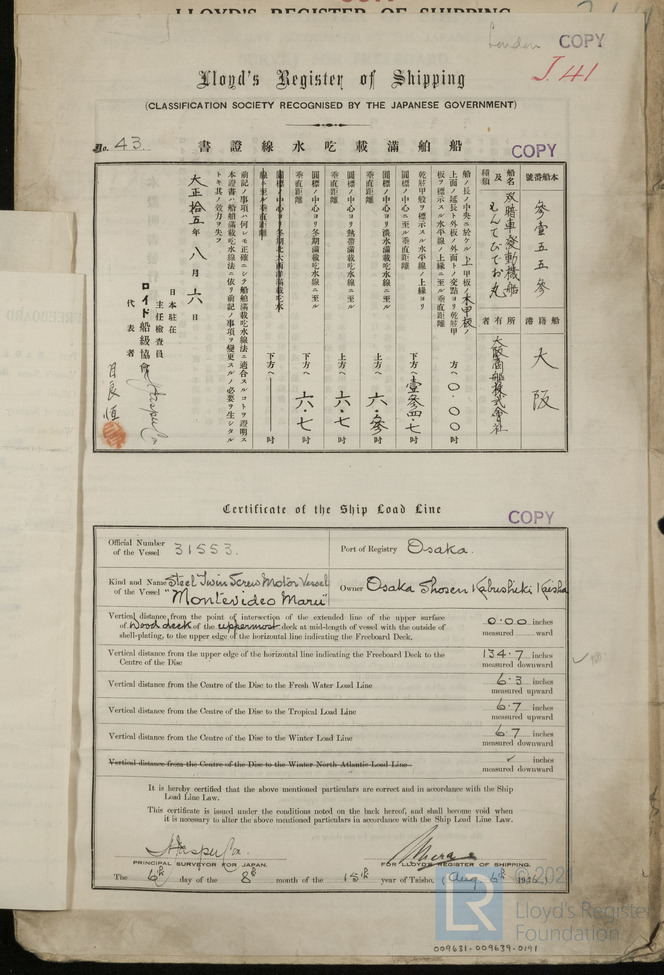 LLOYD'S REGISTER OF SHIPPING
London COPY
J.41
Lloyd's Register of Shipping
(CLASSIFICATION SOCIETY RECOGNISED BY THE JAPANESE GOVERNMENT)
No. 43.
書證線水吃載滿舶船
COPY
船本號番
參壹五五參
船名及種類
双暗車發動機船
もんてびでお丸
船籍港
大阪
所有者
大阪商船株式會社
船ノ長ノ中央ニ於ケル上甲板ノ木甲板ノ
上面ノ延長ト外板ノ外面トノ交點ヨリ乾舷甲
板ヲ標示スル水平線ノ上緣ニ至ル垂直距離
方へ 〇.〇〇 吋
乾舷甲板ヲ標示スル水平線ノ上緣ヨリ
圓標ノ中心ニ至ル垂直距離
下方へ 壹參四.七 吋
圓標ノ中心ヨリ淡水滿載吃水線ニ至ル
垂直距離
上方へ 六.參 吋
圓標ノ中心ヨリ熱帶滿載吃水線ニ至ル
垂直距離
上方へ 六.七 吋
圓標ノ中心ヨリ冬期滿載吃水線ニ至ル
垂直距離
下方へ 六.七 吋
圓標ノ中心ヨリ冬期北大西洋滿載吃水
線ニ至ル垂直距離
下方へ 吋
前記ノ事項ハ何レモ正確ニシテ船舶滿載吃水線法ニ適合スルコトヲ證明ス
本證書ハ船舶滿載吃水線法ニ依リ前記ノ事項ヲ變更スルノ必要ヲ生シタル
トキ其ノ效力ヲ失フ
大正拾五年八月六日
日本駐在
主任檢査員
ロイド船級協會
代表者
Certificate of the Ship Load Line
COPY
Official Number of the Vessel 31553.
Port of Registry Osaka.
Kind and Name of the Vessel Steel Twin Screw Motor Vessel
"Montevideo Maru"
Owner Osaka Shosen Kabushiki Kaisha
Vertical distance from the point of intersection of the extended line of the upper surface
of wood deck of the uppermost deck at mid-length of vessel with the outside of
shell-plating, to the upper edge of the horizontal line indicating the Freeboard Deck.
0.00 inches
measured ward
Vertical distance from the upper edge of the horizontal line indicating the Freeboard Deck to the
Centre of the Disc
134.7 inches
measured downward
Vertical distance from the Centre of the Disc to the Fresh Water Load Line
6.3 inches
measured upward
Vertical distance from the Centre of the Disc to the Tropical Load Line
6.7 inches
measured upward
Vertical distance from the Centre of the Disc to the Winter Load Line
6.7 inches
measured downward
Vertical distance from the Centre of the Disc to the Winter North Atlantic Load Line
inches
measured downward
It is hereby certified that the above mentioned particulars are correct and in accordance with the Ship
Load Line Law.
This certificate is issued under the conditions noted on the back hereof, and shall become void when
it is necessary to alter the above mentioned particulars in accordance with the Ship Load Line Law.
PRINCIPAL SURVEYOR FOR JAPAN.
FOR LLOYD'S REGISTER OF SHIPPING.
The 6th day of the 8th month of the 15th year of Taisho, (Aug. 6th 1926)
© 2021
LR
Lloyd's Register
Foundation
009631-009639-0191